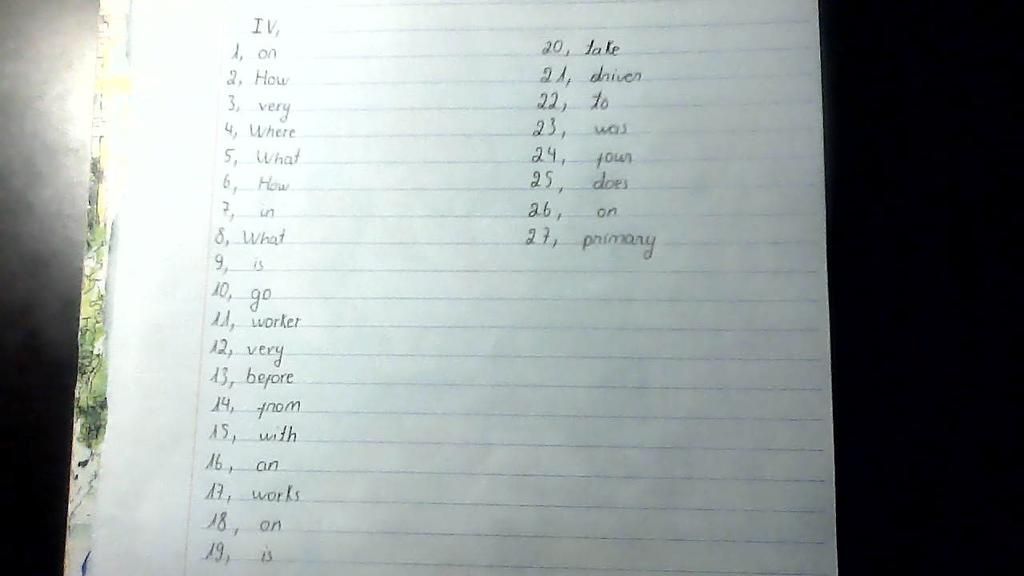 IV,
1, on
2, How
3, very
4, Where
5, What
6, How
7, in
8, What
9, is
10, go
11, worker
12, very
13, before
14, from
15, with
16, an
17, works
18, on
19, is
20, take
21, driver
22, to
23, was
24, four
25, does
26, on
27, primary